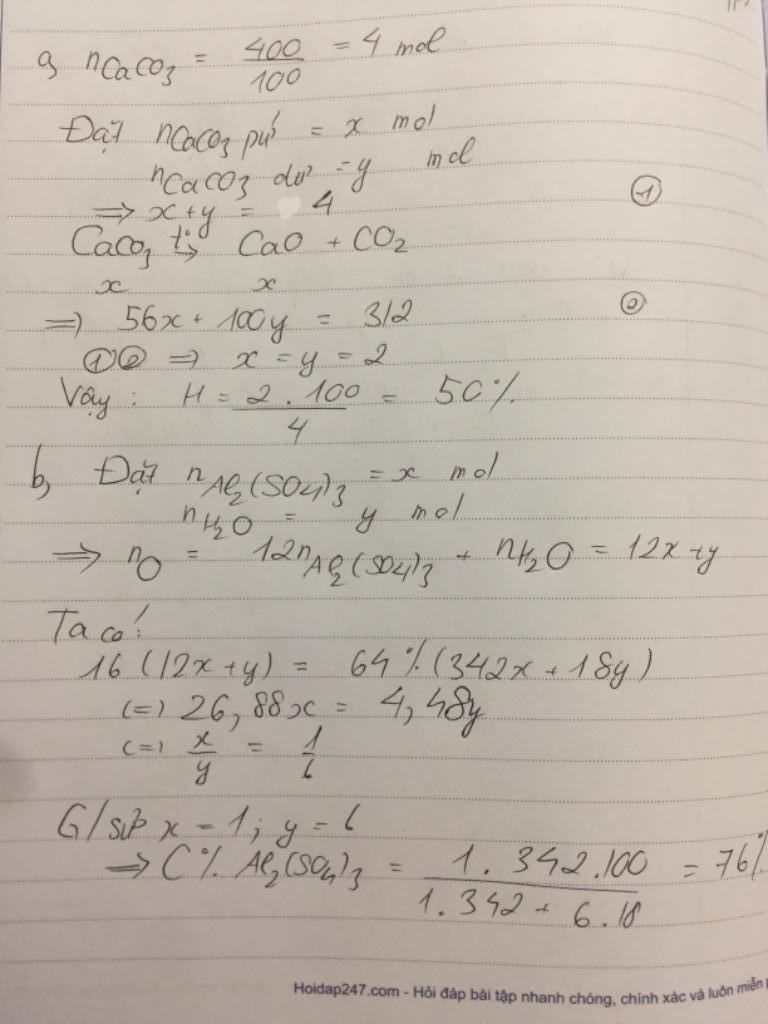 a, nCaCO3 = 400/100 = 4 mol
Đặt nCaCO3 pứ = x mol
nCaCO3 dư = y mol
=> x+y = 4 ①
CaCO3 t°→ CaO + CO2
x x
=> 56x + 100y = 312 ②
①② => x = y = 2
Vậy: H = 2.100/4 = 50%
b, Đặt nAl2(SO4)3 = x mol
nH2O = y mol
=> nO = 12nAl2(SO4)3 + nH2O = 12x+y
Ta có:
16(12x+y) = 64%(342x+18y)
(=) 26,88x = 4,48y
(=) x/y = 1/6
G/sử x = 1; y = 6
=> C% Al2(SO4)3 = 1.342.100/1.342+6.18 = 76%
Hoidap247.com - Hỏi đáp bài tập nhanh chóng, chính xác và luôn miễn